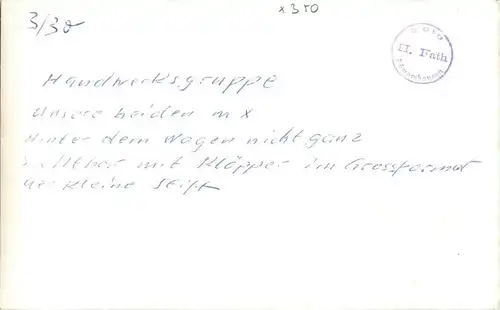 3/30
x 350
FOTO
H. Fath
Handwerksgruppe
unsere beiden m x
Hinter dem Wagen nicht ganz
mit Klöpper im Grossformat
der kleine Stift